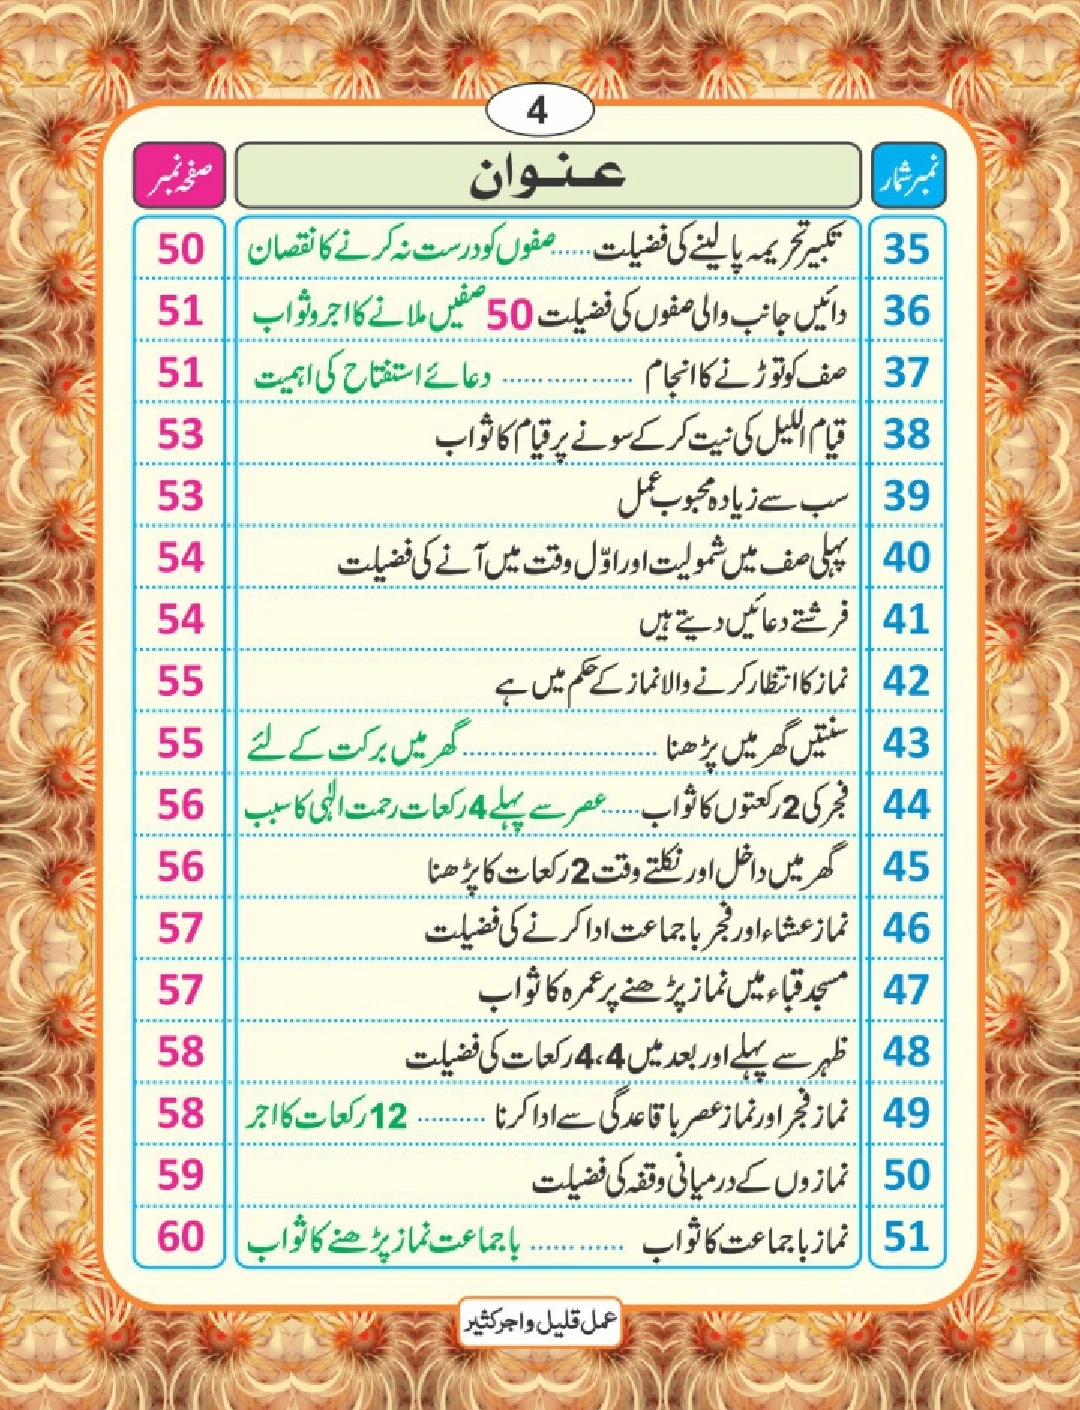 4
نمبر شمار عنوان صفحہ نمبر
35 تکبیر تحریمہ پالینے کی فضیلت ...... صفوں کو درست نہ کرنے کا نقصان 50
36 دائیں جانب والی صفوں کی فضیلت 50 صفیں ملانے کا اجر و ثواب 51
37 صف کو توڑنے کا انجام .................. دعائے استفتاح کی اہمیت 51
38 قیام اللیل کی نیت کر کے سونے پر قیام کا ثواب 53
39 سب سے زیادہ محبوب عمل 53
40 پہلی صف میں شمولیت اور اوّل وقت میں آنے کی فضیلت 54
41 فرشتے دعائیں دیتے ہیں 54
42 نماز کا انتظار کرنے والا نماز کے حکم میں ہے 55
43 سنتیں گھر میں پڑھنا ........................... گھر میں برکت کے لئے 55
44 فجر کی 2 رکعتوں کا ثواب ...... عصر سے پہلے 4 رکعات رحمت الٰہی کا سبب 56
45 گھر میں داخل اور نکلتے وقت 2 رکعات کا پڑھنا 56
46 نماز عشاء اور فجر باجماعت ادا کرنے کی فضیلت 57
47 مسجد قباء میں نماز پڑھنے پر عمرہ کا ثواب 57
48 ظہر سے پہلے اور بعد میں 4،4 رکعات کی فضیلت 58
49 نماز فجر اور نماز عصر باقاعدگی سے ادا کرنا .......... 12 رکعات کا اجر 58
50 نمازوں کے درمیانی وقفہ کی فضیلت 59
51 نماز باجماعت کا ثواب ............ باجماعت نماز پڑھنے کا ثواب 60
عمل قلیل و اجر کثیر